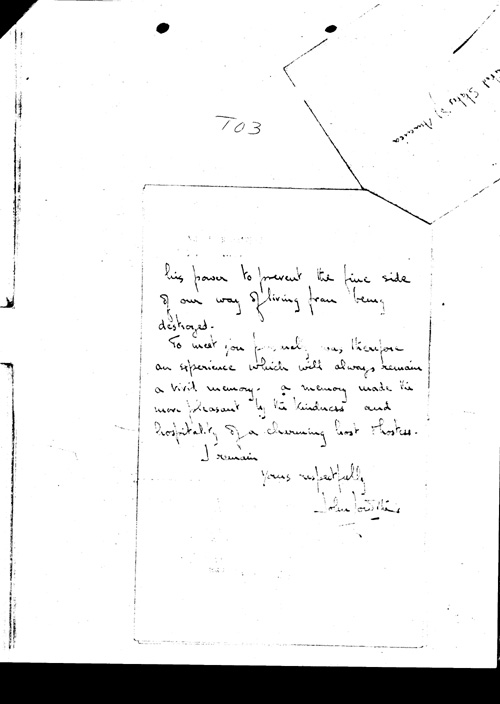 States of America
T03
his power to prevent the fine side
of our way of living from being
destroyed.
To meet you was therefore
an experience which will always remain
a vivid memory. a memory made the
more pleasant by the kindness and
hospitality of a charming host & hostess.
I remain
yours respectfully
John